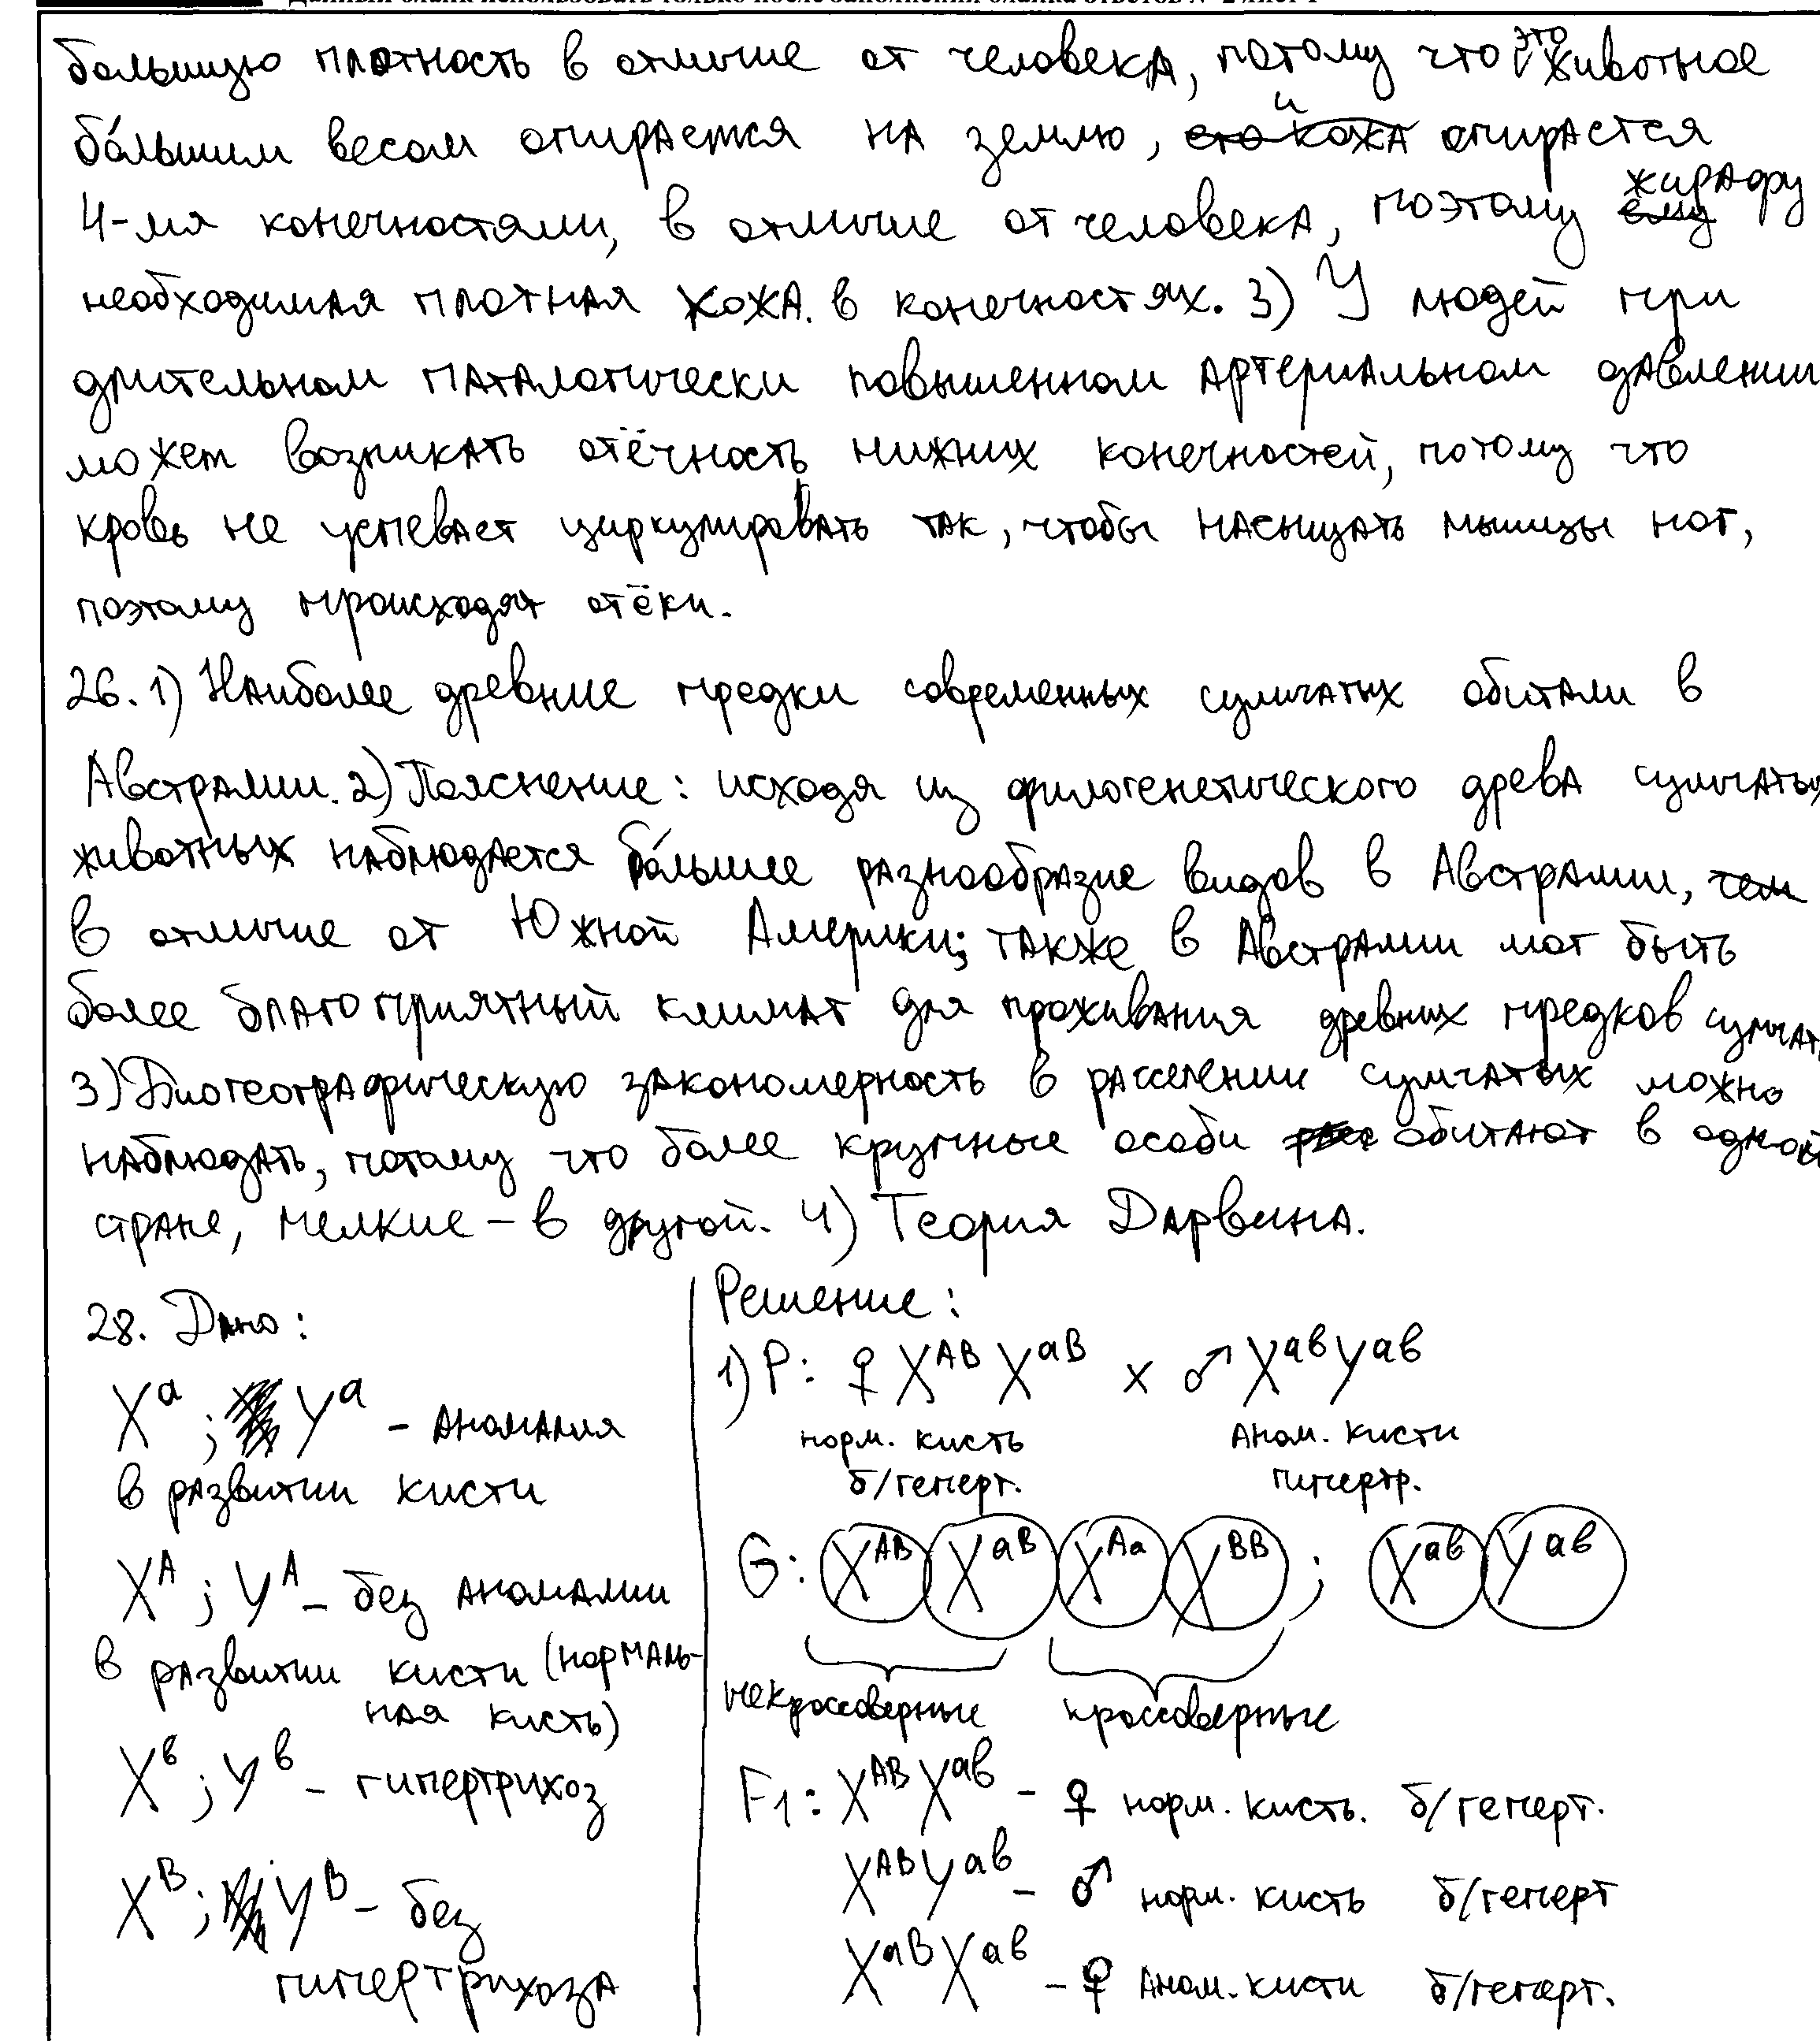 большую плотность в отличие от человека, потому что это животное
бóльшим весом опирается на землю, и опирается
4-мя конечностями, в отличие от человека, поэтому жирафу
необходимая плотная кожа в конечностях. 3) У людей при
длительном паталогически повышенном артериальном давлении
может возникать отёчность нижних конечностей, потому что
кровь не успевает циркулировать так, чтобы насыщать мышцы ног,
поэтому происходят отёки.
26. 1) Наиболее древние предки современных сумчатых обитали в
Австралии. 2) Пояснение: исходя из филогенетического древа сумчатых
животных наблюдается бóльшее разнообразие видов в Австралии, чем
в отличие от Южной Америки; также в Австралии мог быть
более благоприятный климат для проживания древних предков сумчат.
3) Биогеографическую закономерность в расселении сумчатых можно
наблюдать, потому что более крупные особи обитают в одной
стране, мелкие – в другой. 4) Теория Дарвина.
28. Дано:
Xᵃ; Yᵃ – аномалия
в развитии кисти
Xᴬ; Yᴬ – без аномалии
в развитии кисти (нормаль-
ная кисть)
Xᵇ; Yᵇ – гипертрихоз
Xᴮ; Yᴮ – без
гипертрихоза
Решение:
1) P: ♀ Xᴬᴮ Xᵃᴮ x ♂ Xᵃᵇ Yᵃᵇ
норм. кисть аном. кисти
б/геперт. гипертр.
G: Xᴬᴮ Xᵃᴮ Xᴬᵃ Xᴮᴮ ; Xᵃᵇ Yᵃᵇ
некроссоверные кроссоверные
F1: Xᴬᴮ Xᵃᵇ – ♀ норм. кисть. б/геперт.
Xᴬᴮ Yᵃᵇ – ♂ норм. кисть б/геперт
Xᵃᴮ Xᵃᵇ – ♀ аном. кисти б/геперт.